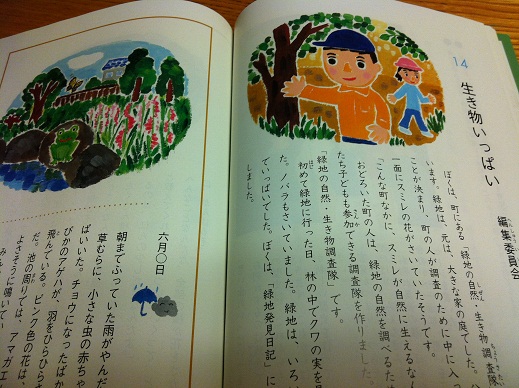 14
生き物いっぱい
編集委員会
ぼくは、町にある「緑地の自然・生き物調査隊
います。緑地は、元は、大きな家の庭でした。
ことが決まり、町の人が調査のために中に入
一面にスミレの花がさいていたそうです。
「こんな町なかに、スミレが自然に生えるな
おどろいた町の人は、緑地の自然を調べるた
たち子どもも参加できる調査隊を作りました
「緑地の自然・生き物調査隊」です。
初めて緑地に行った日、林の中でクワの実を
た。ノバラもさいていました。緑地は、いろ
でいっぱいでした。ぼくは、「緑地発見日記」に
しました。
六月〇日
朝までふっていた雨がやんだ
草むらに、小さな虫の赤ちゃ
ぱいいた。チョウになったばか
ぴかのアゲハが、羽をひらひら
飛んでいる。ピンク色の花は、
だ。池の周りでは、アマガエ
よさそうに鳴いてい
みん